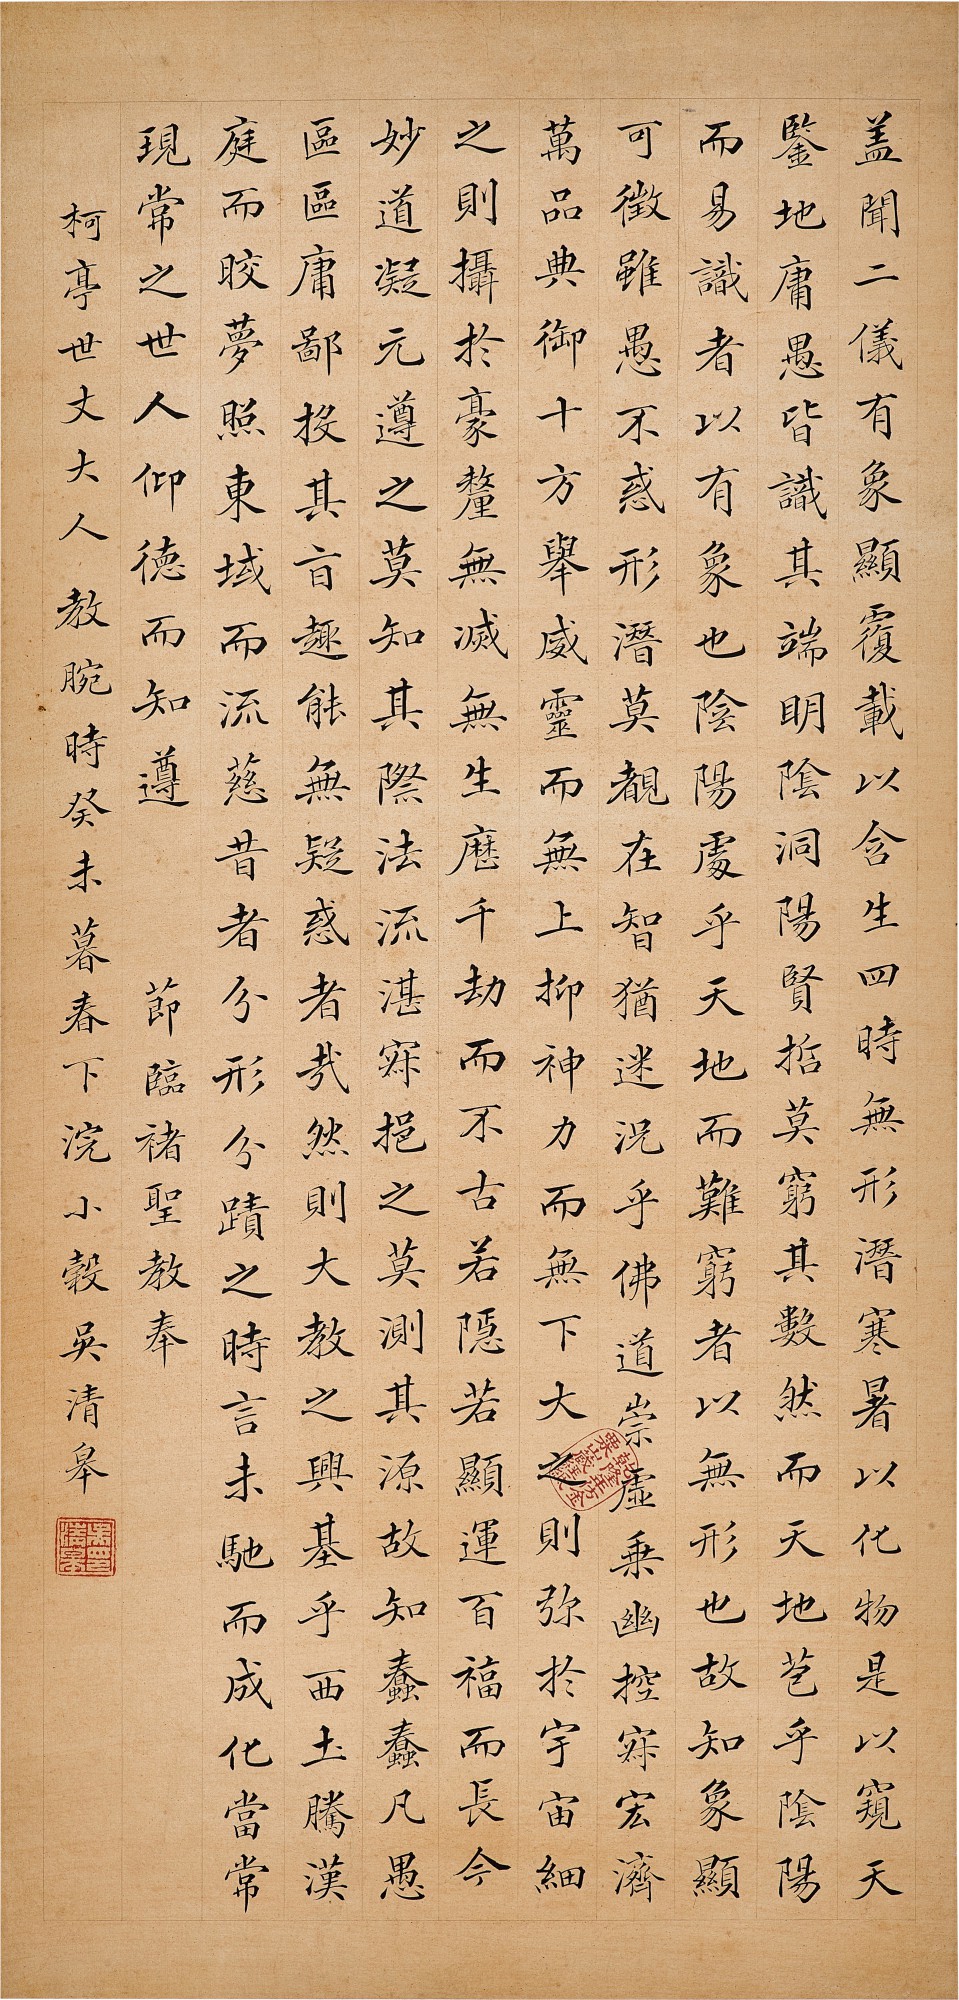 盖聞二儀有象顯覆載以含生四時無形潛寒暑以化物是以窺天
鑒地庸愚皆識其端明陰洞陽賢哲莫窮其數然而天地苞乎陰陽
而易識者以有象也陰陽處乎天地而難窮者以無形也故知象顯
可徵雖愚不惑形潛莫覩在智猶迷況乎佛道崇虛乗幽控寂宏濟
萬品典御十方舉威靈而無上抑神力而無下大之則弥於宇宙細
之則攝於豪釐無滅無生歷千劫而不古若隱若顯運百福而長今
妙道凝元遵之莫知其際法流湛寂挹之莫測其源故知蠢蠢凡愚
區區庸鄙投其旨趣能無疑惑者哉然則大教之興基乎西土騰漢
庭而晈夢照東域而流慈昔者分形分蹟之時言未馳而成化當常
現常之世人仰德而知遵 節臨褚聖教奉
柯亭世丈大人教腕時癸未暮春下浣小穀吳清皋